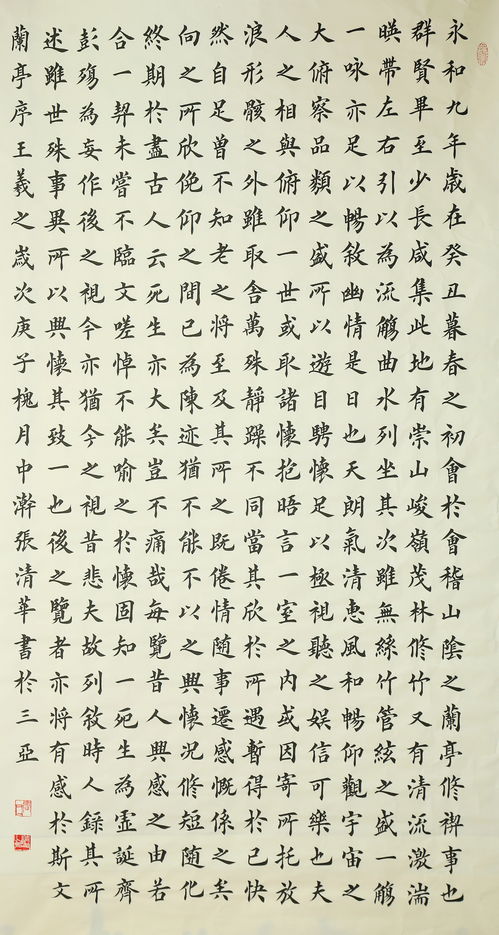 永和九年歲在癸丑暮春之初會於會稽山陰之蘭亭俢禊事也
群賢畢至少長咸集此地有崇山峻嶺茂林俢竹又有清流激湍
暎帶左右引以為流觴曲水列坐其次雖無絲竹管絃之盛一觴
一咏亦足以暢敘幽情是日也天朗氣清惠風和暢仰觀宇宙之
大俯察品類之盛所以遊目騁懷足以極視聽之娛信可樂也夫
人之相與俯仰一世或取諸懷抱晤言一室之內或因寄所托放
浪形骸之外雖取舍萬殊靜躁不同當其欣於所遇暫得於己快
然自足曾不知老之將至及其所之既倦情隨事遷感慨係之矣
向之所欣俛仰之間已為陳迹猶不能不以之興懷況俢短隨化
終期於盡古人云死生亦大矣豈不痛哉每覽昔人興感之由若
合一契未嘗不臨文嗟悼不能喻之於懷固知一死生為虛誕齊
彭殤為妄作後之視今亦猶今之視昔悲夫故列敘時人錄其所
述雖世殊事異所以興懷其致一也後之覽者亦將有感於斯文
蘭亭序王羲之歲次庚子槐月中澣張清華書於三亞